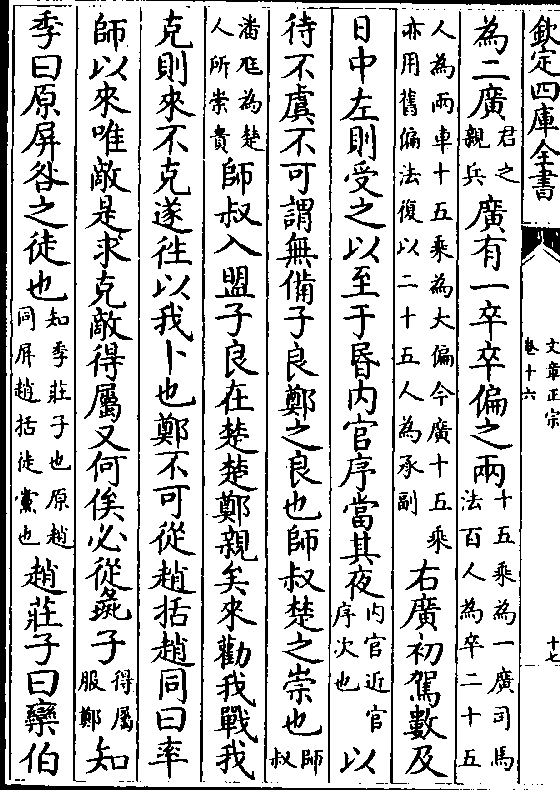 欽定四庫全書
文章正宗
卷十六
十七
為二廣君之親兵廣有一卒卒偏之兩十五乘為一廣司馬法百人為卒二十五
人為兩車十五乘為大偏今廣十五乘亦用舊偏法復以二十五人為承副右廣初駕數及
日中左則受之以至于昬内官序當其夜内官近官序次也以
待不虞不可謂無備子良鄭之良也師叔楚之崇也師叔
潘尫為楚人所崇貴師叔入盟子良在楚楚鄭親矣來勸我戰我
克則來不克遂往以我卜也鄭不可從趙括趙同曰率
師以來唯敵是求克敵得屬又何俟必從彘子得屬服鄭知
季曰原屏咎之徒也知季莊子也原趙同屏趙括徒黨也趙莊子曰欒伯